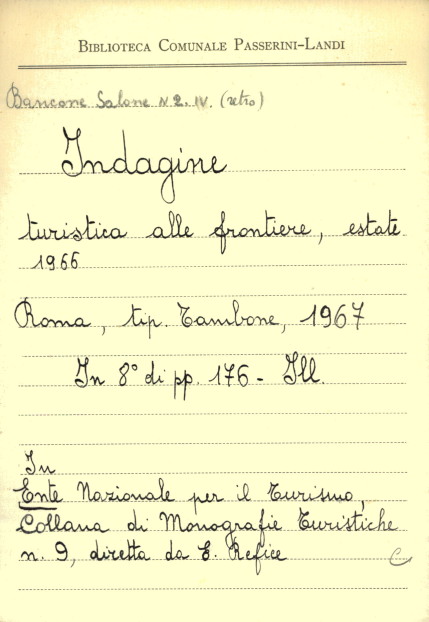 BIBLIOTECA COMUNALE PASSERINI-LANDI
Bancone Salone N 2. IV. (retro)
Indagine
turistica alle frontiere, estate
1966
Roma, tip. Tambone, 1967
In 8° di pp. 176 - Ill.
In
Ente Nazionale per il Turismo,
Collana di Monografie Turistiche
n. 9, diretta da E. Refice
C